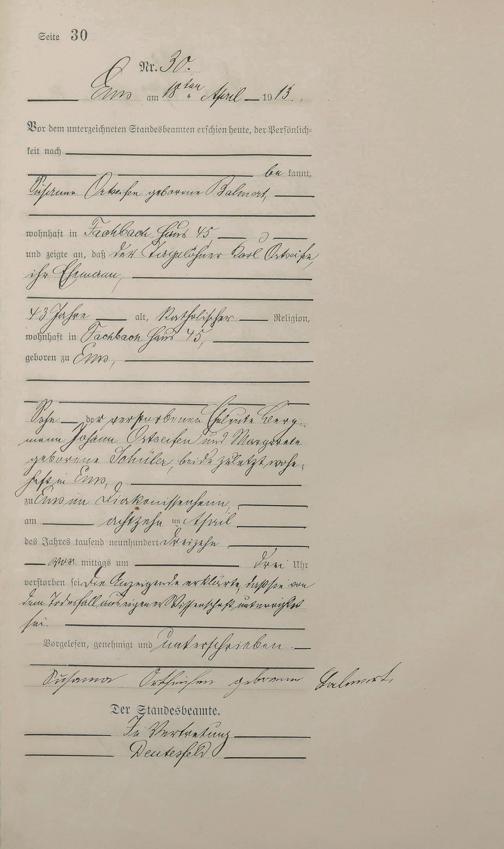 Seite 30
Nr. 30.
Ems am 18ten April 1913.
Vor dem unterzeichneten Standesbeamten erschien heute, der Persönlich-
keit nach
be kannt,
Susanna Ortseifen geborene Balmert,
wohnhaft in Fachbach Haus 45
und zeigte an, daß der Tagelöhner Karl Ortseifen,
ihr Ehemann,
43 Jahre alt, katholischer Religion,
wohnhaft in Fachbach Haus 45,
geboren zu Ems,
Sohn der verstorbenen Eheleute Berg-
mann Johann Ortseifen und Margarete
geborene Schüler, beide zuletzt wohn-
haft in Ems,
zu Ems im Diakonissenheim,
am achtzehnten April
des Jahres tausend neunhundert dreizehn
vor mittags um drei Uhr
verstorben sei. Die Anzeigende erklärte, daß sie von
dem Todesfall aus eigener Wissenschaft unterrichtet
sei.
Vorgelesen, genehmigt und unterschrieben
Susanna Ortseifen geborene Balmert.
Der Standesbeamte.
In Vertretung